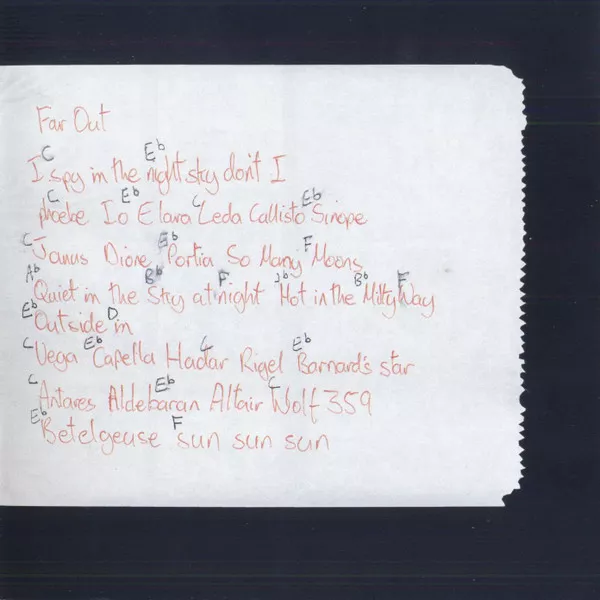 Far Out
C Eb
I spy in the night sky don't I
C Eb C Eb
phoebe Io Elara Leda Callisto Sinope
C Eb F
Janus Dione Portia So Many Moons
Ab Bb F Bb F
Quiet in the Sky at night Hot in the Milky Way
Eb D
Outside in
C Eb C Eb
Vega Capella Hadar Rigel Barnard's star
C Eb C
Antares Aldebaran Altair Wolf 359
Eb F
Betelgeuse sun sun sun